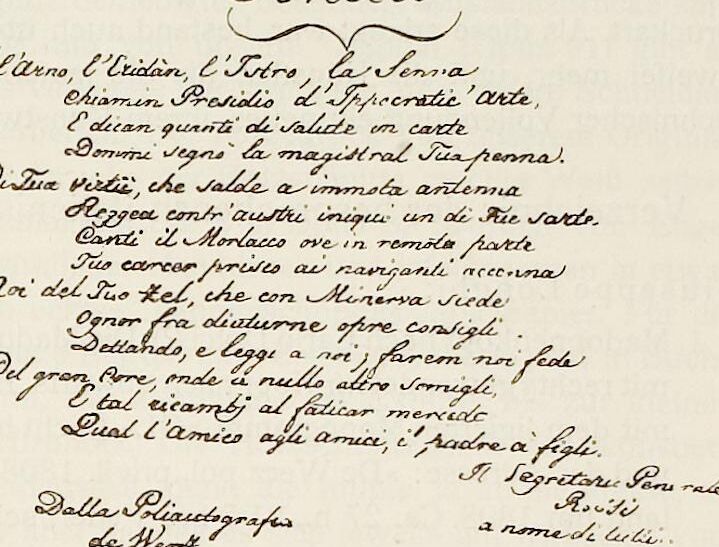 l'Arno, l'Eridàn, l'Istro, la Senna
Chiamin Presidio d'Ippocratic' Arte,
E dican quanti di salute in carte
Dommi segnò la magistral Tua penna.
Di Tua virtù, che salde a immota antenna
Reggea contr'austri iniqui un dì Tue sarte.
Canti il Morlacco ove in remota parte
Tuo carcer prisco ai naviganti accenna
Noi del Tuo Zel, che con Minerva siede
Ognor fra diuturne opre consigli
Dettando, e leggi a noi, farem noi fede
Del gran Core, onde a nullo altro somigli,
E tal ricambj al faticar mercede
Qual l'Amico agli amici, il padre a' figli.
Il Segretario Generale
a nome di tutti.
Dalla Poliautografia
de Werz